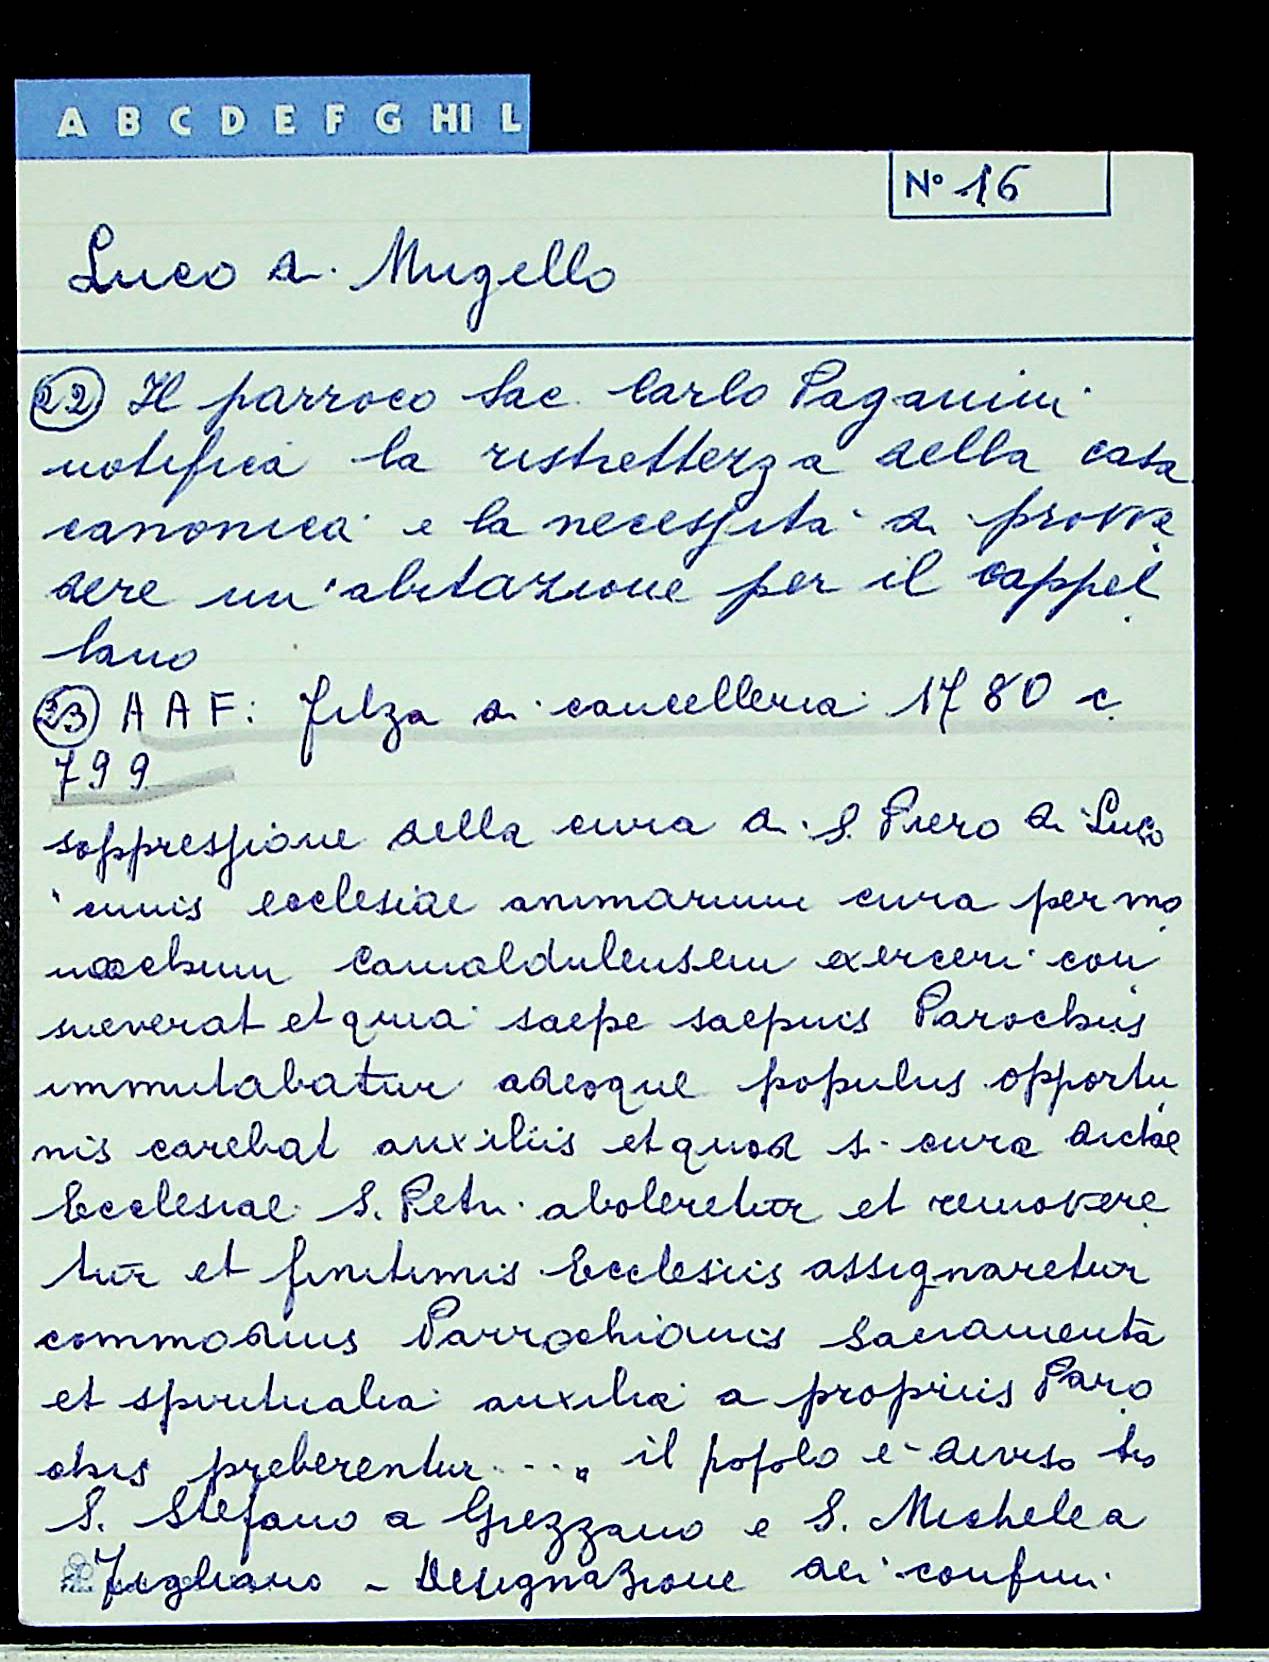 A B C D E F G HI L
N° 16
Luco di Mugello
22 Il parroco Sac. Carlo Paganini
notifica la ristrettezza della casa
canonica e la necessità di provve
dere un'abitazione per il cappel
lano
23 A A F: filza di cancelleria 1780 c.
799
soppressione della cura di S. Piero di Luco
"cuius ecclesiae animarum cura per mo
nachum camaldulensem exerceri con
sueverat et quia saepe saepius Parochus
immutabatur adeoque populus opportu
nis carebat auxiliis et quod s. cura dictae
Ecclesiae S. Petri aboleretur et removere
tur et finitimis Ecclesiis assignaretur
commodius Parrochianis Sacramenta
et spiritualia auxilia a propriis Paro
chis preberentur...." il popolo è diviso tra
S. Stefano a Grezzano e S. Michele a
Figliano - Designazione dei confini.